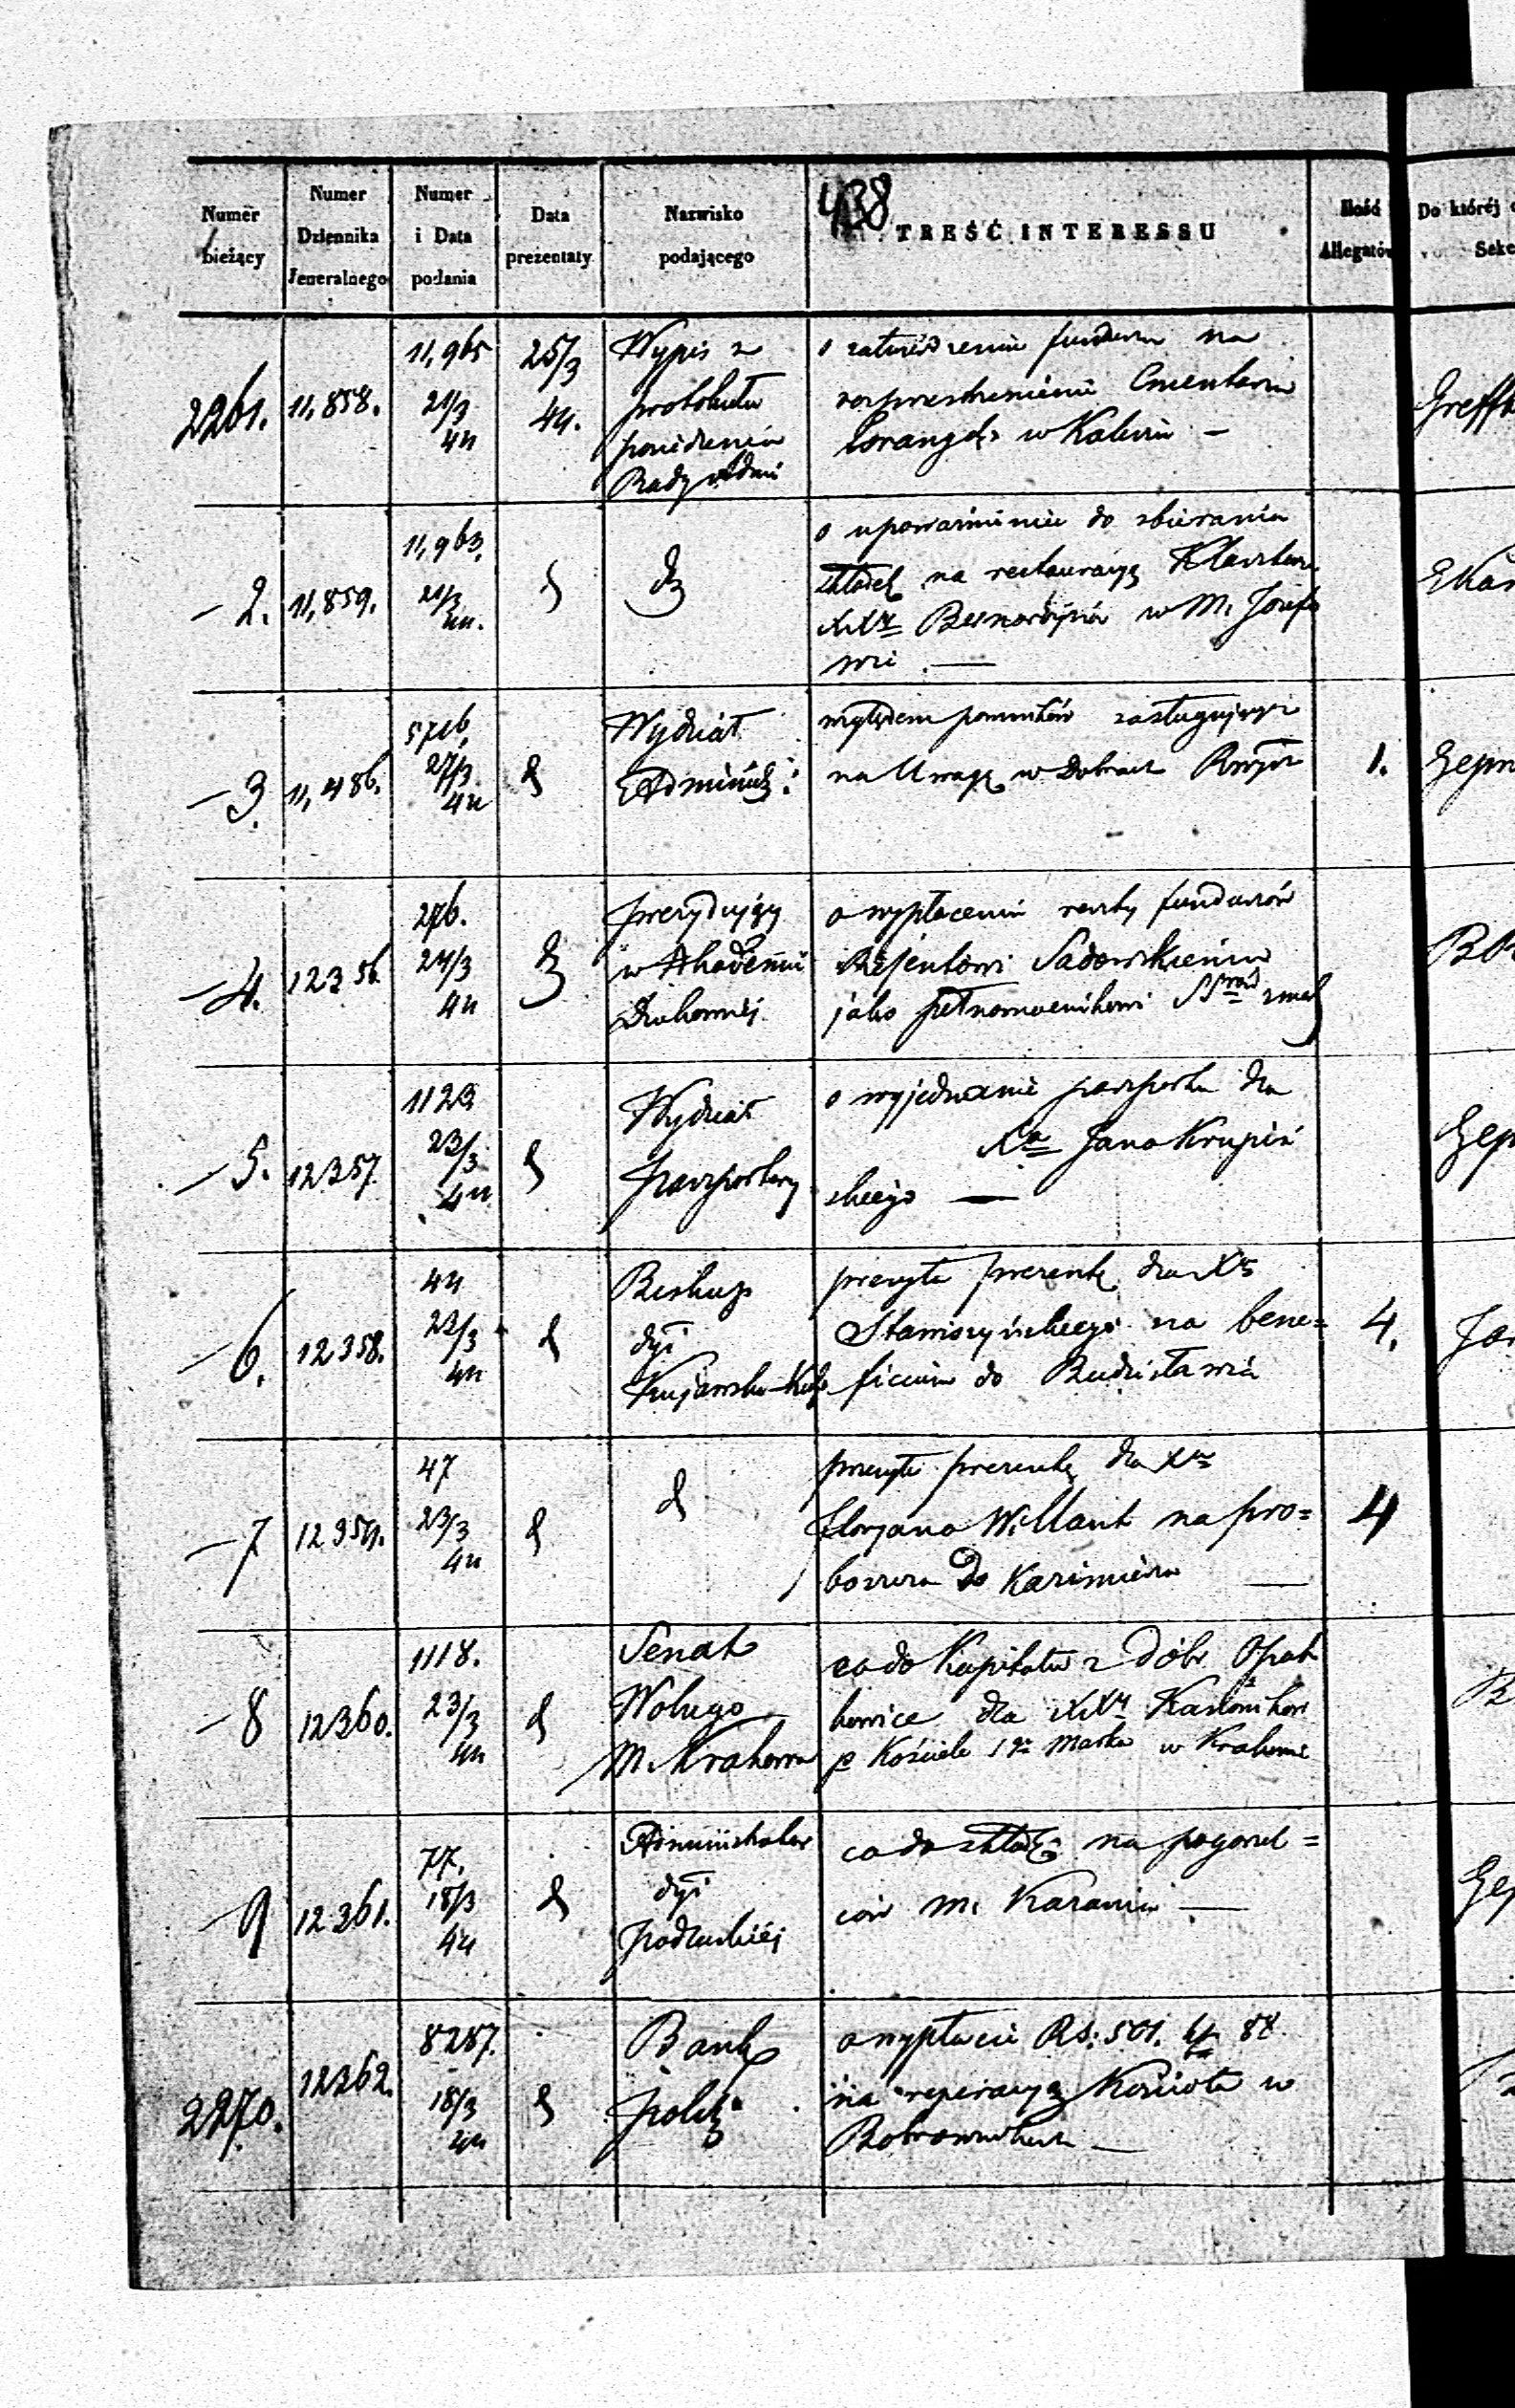 438
Numer
bieżący
Numer
Dziennika
Jeneralnego
Numer
i Data
podania
Data
prezentaty
Nazwisko
podającego
TREŚĆ INTERESSU
Ilość
Allegatów
Do któréj
Sek
2261.
11,858.
11,965
21/3
44
25/3
44.
Wypis z
protokułu
posiedzenia
Rady
o zatwierdzenie funduszu na
rozprzestrzenienie Cmentarza
w Kaliszu —
— 2.
11,859.
11,963.
21/3
44.
o upoważnienie do zbierania
składek na restauracyą Klasztoru
XXy Bernardynów w M. Józefo
wie. —
— 3.
11,486.
27/3
44
Wydział
Administ:
względem pomników zasługujących
na Uwagę w dobrach
1.
— 4.
12356.
276.
24/3
44
prezydujący
w Akademii
Duchownej
o wypłacenie reszty funduszów
Rejentowi Sadowskiemu
jako pełnomocnikowi
— 5.
12357.
1123
23/3
44
Wydział
paszportowy
o wyjednanie paszportu dla
Xa Jana Krupiń
skiego —
— 6.
12358.
44
23/3
44
Biskup
dyi
Kujawsko-Kal
przesyła prezentę dla Xa
Stawiszyńskiego na bene=
ficium do Budzisławia
4.
— 7
12359.
47
23/3
44
przesyła prezentę dla Xa
Floryana Willant na pro=
boszcza do Kazimierza —
4
— 8
12360.
1118.
23/3
44
Senat
Wolnego
M. Krakowa
co do Kapitału z dóbr Opat
kowice dla XXy Kanoników
p Kościele Sgo Marka w Krakowie
— 9
12361.
77.
18/3
44
Administrator
dyi
podlaskiéj
co do składki na pogorzel=
ców m.
2270.
12362.
8287.
18/3
44
Bank
polski
o wypłacie Rs: 501. k 88.
na reperacyą Kościoła w